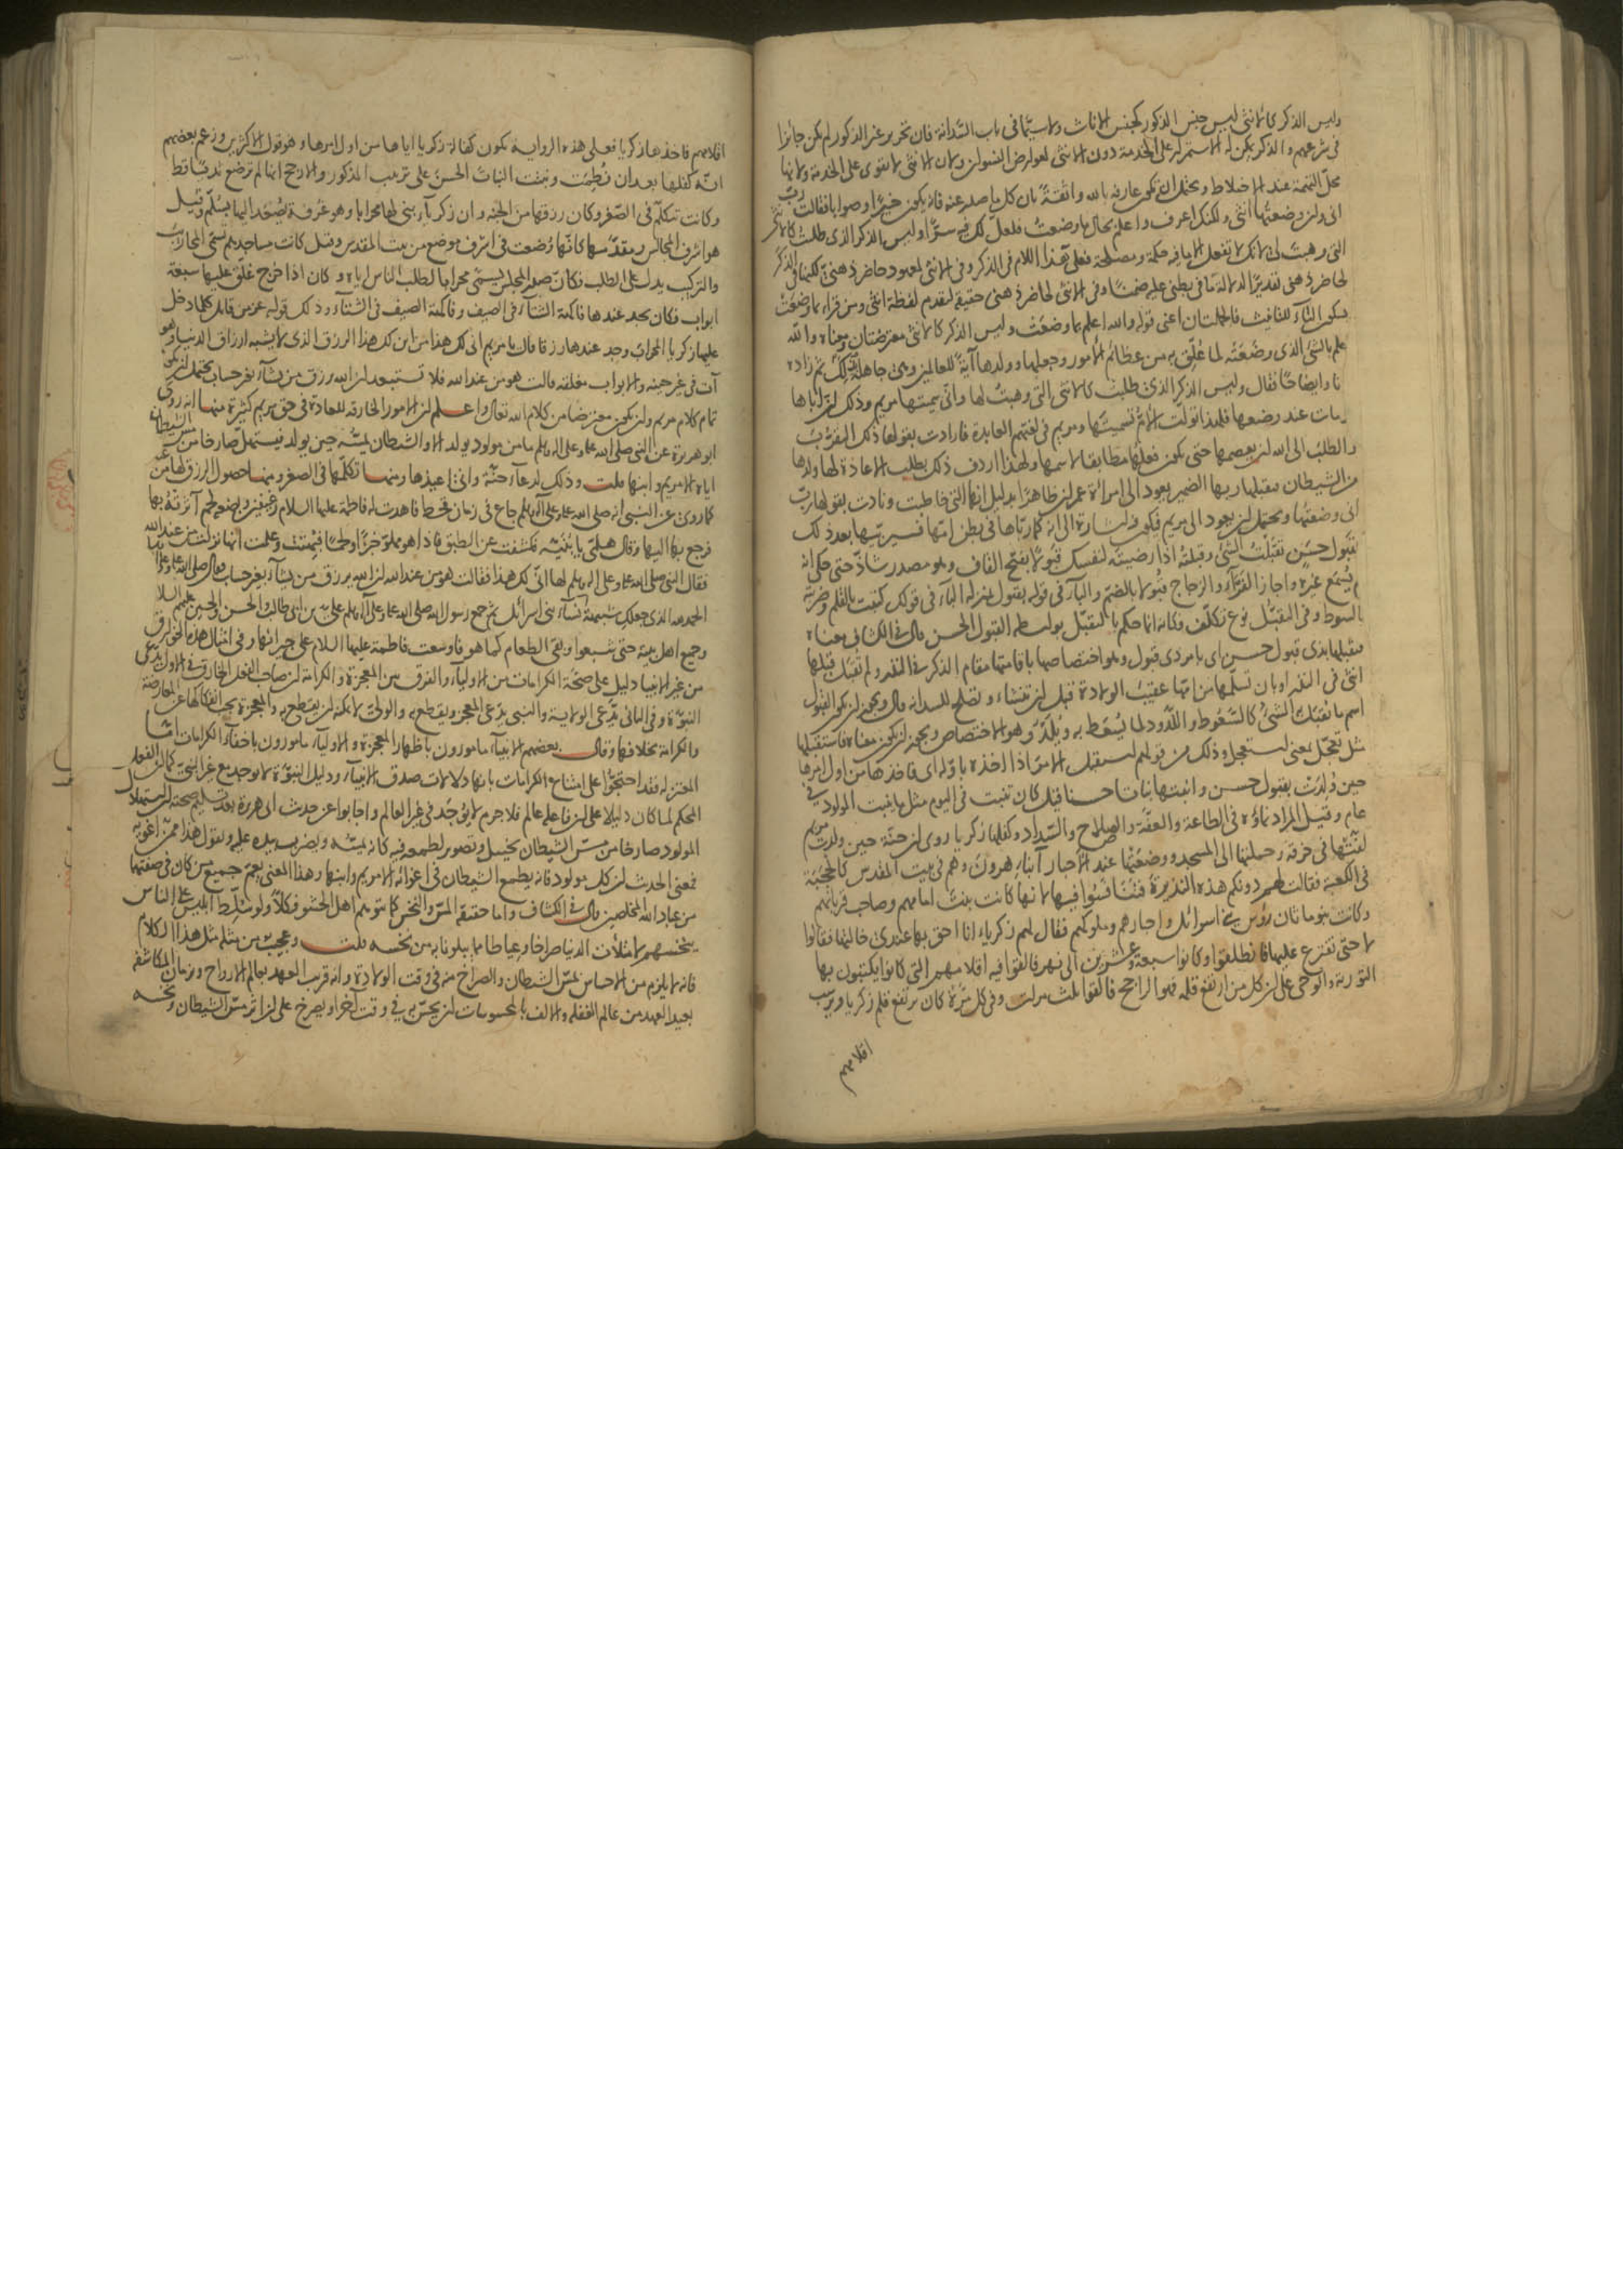 وليس الذكر كالانثى ليس جنس الذكور كجنس الاناث ولا سيما في باب السدانة فان تحرير غير الذكور لم يكن جائزا
في شرعهم والذكر يمكن له الاستمرار على الخدمة دون الانثى لعوارض النسوان ولان الانثى لا تقوى على الخدمة ولانها
محل التهمة عند الاختلاط ويحتمل ان تكون عارفة بالله واثقة بان كل ما صدر عنه فانه يكون خيرا وصوابا فقالت رب
اني وان وضعتها انثى ولكنك اعرف واعلم بحال ما وضعت فلعل لك فيه سرا وليس الذكر الذي طلبت كالانثى
التي وهبت لي لانك لا تفعل الا ما فيه حكمة ومصلحة فعلى هذا اللام في الذكر وفي الانثى لمعهود حاضر ذهني لكنها في الذكر
لحاضر ذهني تقديرا لدلالة ما في بطني عليه ضمنا وفي الانثى لحاضر ذهني حقيقة لتقدم لفظة انثى ومن قراء بما وضعت
بسكون التاء للتانيث فالجملتان اعني قوله والله اعلم بما وضعت وليس الذكر كالانثى معترضتان ومعناه والله
علم بالشئ الذي وضعته لما علق به من عظائم الامور وجعلها وولدها آية للعالمين وهي جاهلة بذلك ثم زاده
نا وايضاحا فقال وليس الذكر الذي طلبت كالانثى التي وهبت لها واني سميتها مريم وذلك ان اباها
مات عند وضعها فلهذا تولت الام تسميتها ومريم في لغتهم العابدة فارادت بقولها ذلك التقرب
والطلب الى الله ان يعصمها حتى يكون فعلها مطابقا لاسمها ولهذا اردف ذلك بطلب الاعاذة لها ولولدها
من الشيطان فتقبلها ربها الضمير يعود الى امرأة عمران ظاهرا بدليل انها التي خاطبت ونادت بقولها رب
اني وضعتها ويحتمل ان يعود الى مريم فيكون اشارة الى انه كما رباها في بطن امها فسيربيها بعد ذلك
بقبول حسن تقبلت الشئ وقبلته اذا رضيته لنفسك قبولا بفتح القاف وهو مصدر شاذ حتى حكي انه
لم يسمع غيره واجاز الفراء والزجاج قبولا بالضم والباء في قوله بقبول بمنزلة الباء في قولك كتبت بالقلم وضربته
بالسوط وفي التقبل نوع تكلف فكانه انما حكم بالتقبل بواسطة القبول الحسن قال في الكشاف معناه
فتقبلها بذي قبول حسن اي بامر ذي قبول وهو اختصاصها باقامتها مقام الذكر في النذر ولم تقبل قبلها
انثى في النذر او بان تسلمها من امها عقيب الولادة قبل ان تنشاء وتصلح للسدانة قال ويجوز ان يكون القبول
اسم ما تقبل به الشئ كالسعوط واللدود لما يسعط به ويلد وهو الاختصاص ويجوز ان يكون معناه فاستقبلها
مثل تعجل بمعنى استعجل وذلك من قولهم استقبل الامر اذا اخذه باوله اي فاخذها من اول امرها
حين ولدت بقبول حسن وانبتها نباتا حسنا قيل كان تنبت في اليوم مثل ما ينبت المولود في
عام وقيل المراد نماؤه في الطاعة والعفة والصلاح والسداد وكفلها زكريا روي ان حنة حين ولدت مريم
لفتها في خرقة وحملتها الى المسجد ووضعتها عند الاحبار ابناء هرون وهم في بيت المقدس كالحجبة
في الكعبة فقالت لهم دونكم هذه النذيرة فتنافسوا فيها لانها كانت بنت امامهم وصاحب قربانهم
وكانت بنو ماثان رؤس بني اسرائيل واحبارهم وملوكهم فقال لهم زكرياء انا احق بها عندي خالتها فقالوا
لا حتى نقترع عليها فانطلقوا وكانوا سبعة وعشرين الى نهر فالقوا فيه اقلامهم التي كانوا يكتبون بها
التورية والوحي على ان كل من ارتفع قلمه فهو الراجح فالقوا ثلث مرات وفي كل مرة كان يرتفع قلم زكريا ويرسب
اقلامهم
اقلامهم فاخذها زكريا فعلى هذه الرواية تكون كفالة زكريا اياها من اول امرها وهو قول الاكثرين وزعم بعضهم
انه كفلها بعد ان فطمت ونبتت النبات الحسن على ترتيب المذكور والارجح انها لم ترضع ثديا قط
وكانت تتكلم في الصغر وكان رزقها من الجنة وان زكريا بنى لها محرابا وهو غرفة يصعد اليها بسلم وقيل
هو اشرف المجالس ومقدمها كانها وضعت في اشرف موضع من بيت المقدس وقيل كانت مساجدهم تسمى المحاريب
والتركيب يدل على الطلب فكان صدر المجلس يسمى محرابا لطلب الناس اياه وكان اذا خرج غلق عليها سبعة
ابواب فكان يجد عندها فاكهة الشتاء في الصيف وفاكهة الصيف في الشتاء وذلك قوله عز من قائل كلما دخل
عليها زكريا المحراب وجد عندها رزقا قال يا مريم انى لك هذا من اين لك هذا الرزق الذي لا يشبه ارزاق الدنيا وهو
آت في غير حينه والابواب مغلقة قالت هو من عند الله فلا تستبعد ان الله يرزق من يشاء بغير حساب يحتمل ان يكون
تمام كلام مريم وان يكون معترضا من كلام الله تعالى واعلم ان الامور الخارقة للعادة في حق مريم كثيرة منها انه روى
ابو هريرة عن النبي صلى الله عليه وعلى اله وسلم ما من مولود يولد الا والشيطان يمسه حين يولد فيستهل صارخا من مس الشيطان
اياه الا مريم وابنها قلت وذلك لدعاء حنة واني اعيذها ومنها تكلمها في الصغر ومنها حصول الرزق لها من عند
كما روي عن النبي انه صلى الله عليه وعلى آله وسلم جاع في زمان قحط فاهدت له فاطمة عليها السلام رغيفين وبضعة لحم آثرته بها
فرجع بها اليها وقال هلمي يا بنية فكشفت عن الطبق فاذا هو مملو خبزا ولحما فبهتت وعلمت انها نزلت من عند الله
فقال النبي صلى الله عليه وعلى اله وسلم لها انى لك هذا فقالت هو من عند الله ان الله يرزق من يشاء بغير حساب فقال صلى الله عليه
الحمد لله الذي جعلك شبيهة نساء بني اسرائيل ثم جمع رسول الله صلى الله عليه وعلى آله وسلم علي بن ابي طالب والحسن والحسين عليهم السلام
وجميع اهل بيته حتى شبعوا وبقي الطعام كما هو فاوسعت فاطمة عليها السلام على جيرانها وفي امثال هذه الخوارق
من غير الانبيا دليل على صحة الكرامات من الاولياء والفرق بين المعجزة والكرامة ان صاحب الفعل الخارق في الاول يدعي
النبوة وفي الثاني يدعي الولاية والنبي يدعي المعجز ويقطع به والولي لا يمكنه ان يقطع به والمعجزة يجب انفكاكها عن المعارضة
والكرامة بخلافها وقال بعضهم الانبياء مامورون باظهار المعجزة والاولياء مامورون باخفاء الكرامات اما
المعتزلة فقد احتجوا على امتناع الكرامات بانها دلالات صدق الانبياء ودليل النبوة لا يوجد مع غير النبي كما ان الفعل
المحكم لما كان دليلا على ان فاعله عالم فلا جرم لا يوجد في غير العالم واجابوا عن حديث ابي هريرة بعد تسليم صحته ان استهلال
المولود صارخا من مس الشيطان تخييل وتصوير لطمعه فيه كانه يمسه ويضرب بيده عليه ويقول هذا ممن اغويه
فمعنى الحديث ان كل مولود فانه يطمع الشيطان في اغوائه الا مريم وابنها وهذا المعنى يعم جميع من كان في صفتهما
من عباد الله المخلصين قال في الكشاف واما حقيقة المس والنخس كما توهم اهل الحشو فكلا ولو سلط ابليس على الناس
ينخسهم لامتلأت الدنيا صراخا وعياطا مما يبلونا به من نخسه قلت وعجيب من مثله مثل هذا الكلام
فانه لا يلزم من الاحساس بمس الشيطان والصراخ منه في وقت الولادة وانه قريب العهد بعالم الارواح وزمان المكاشفة
بعيد العهد من عالم الغفلة والالف بالمحسوسات ان يحس به في وقت آخر او يصرخ على ان اثر مس الشيطان ونخسه